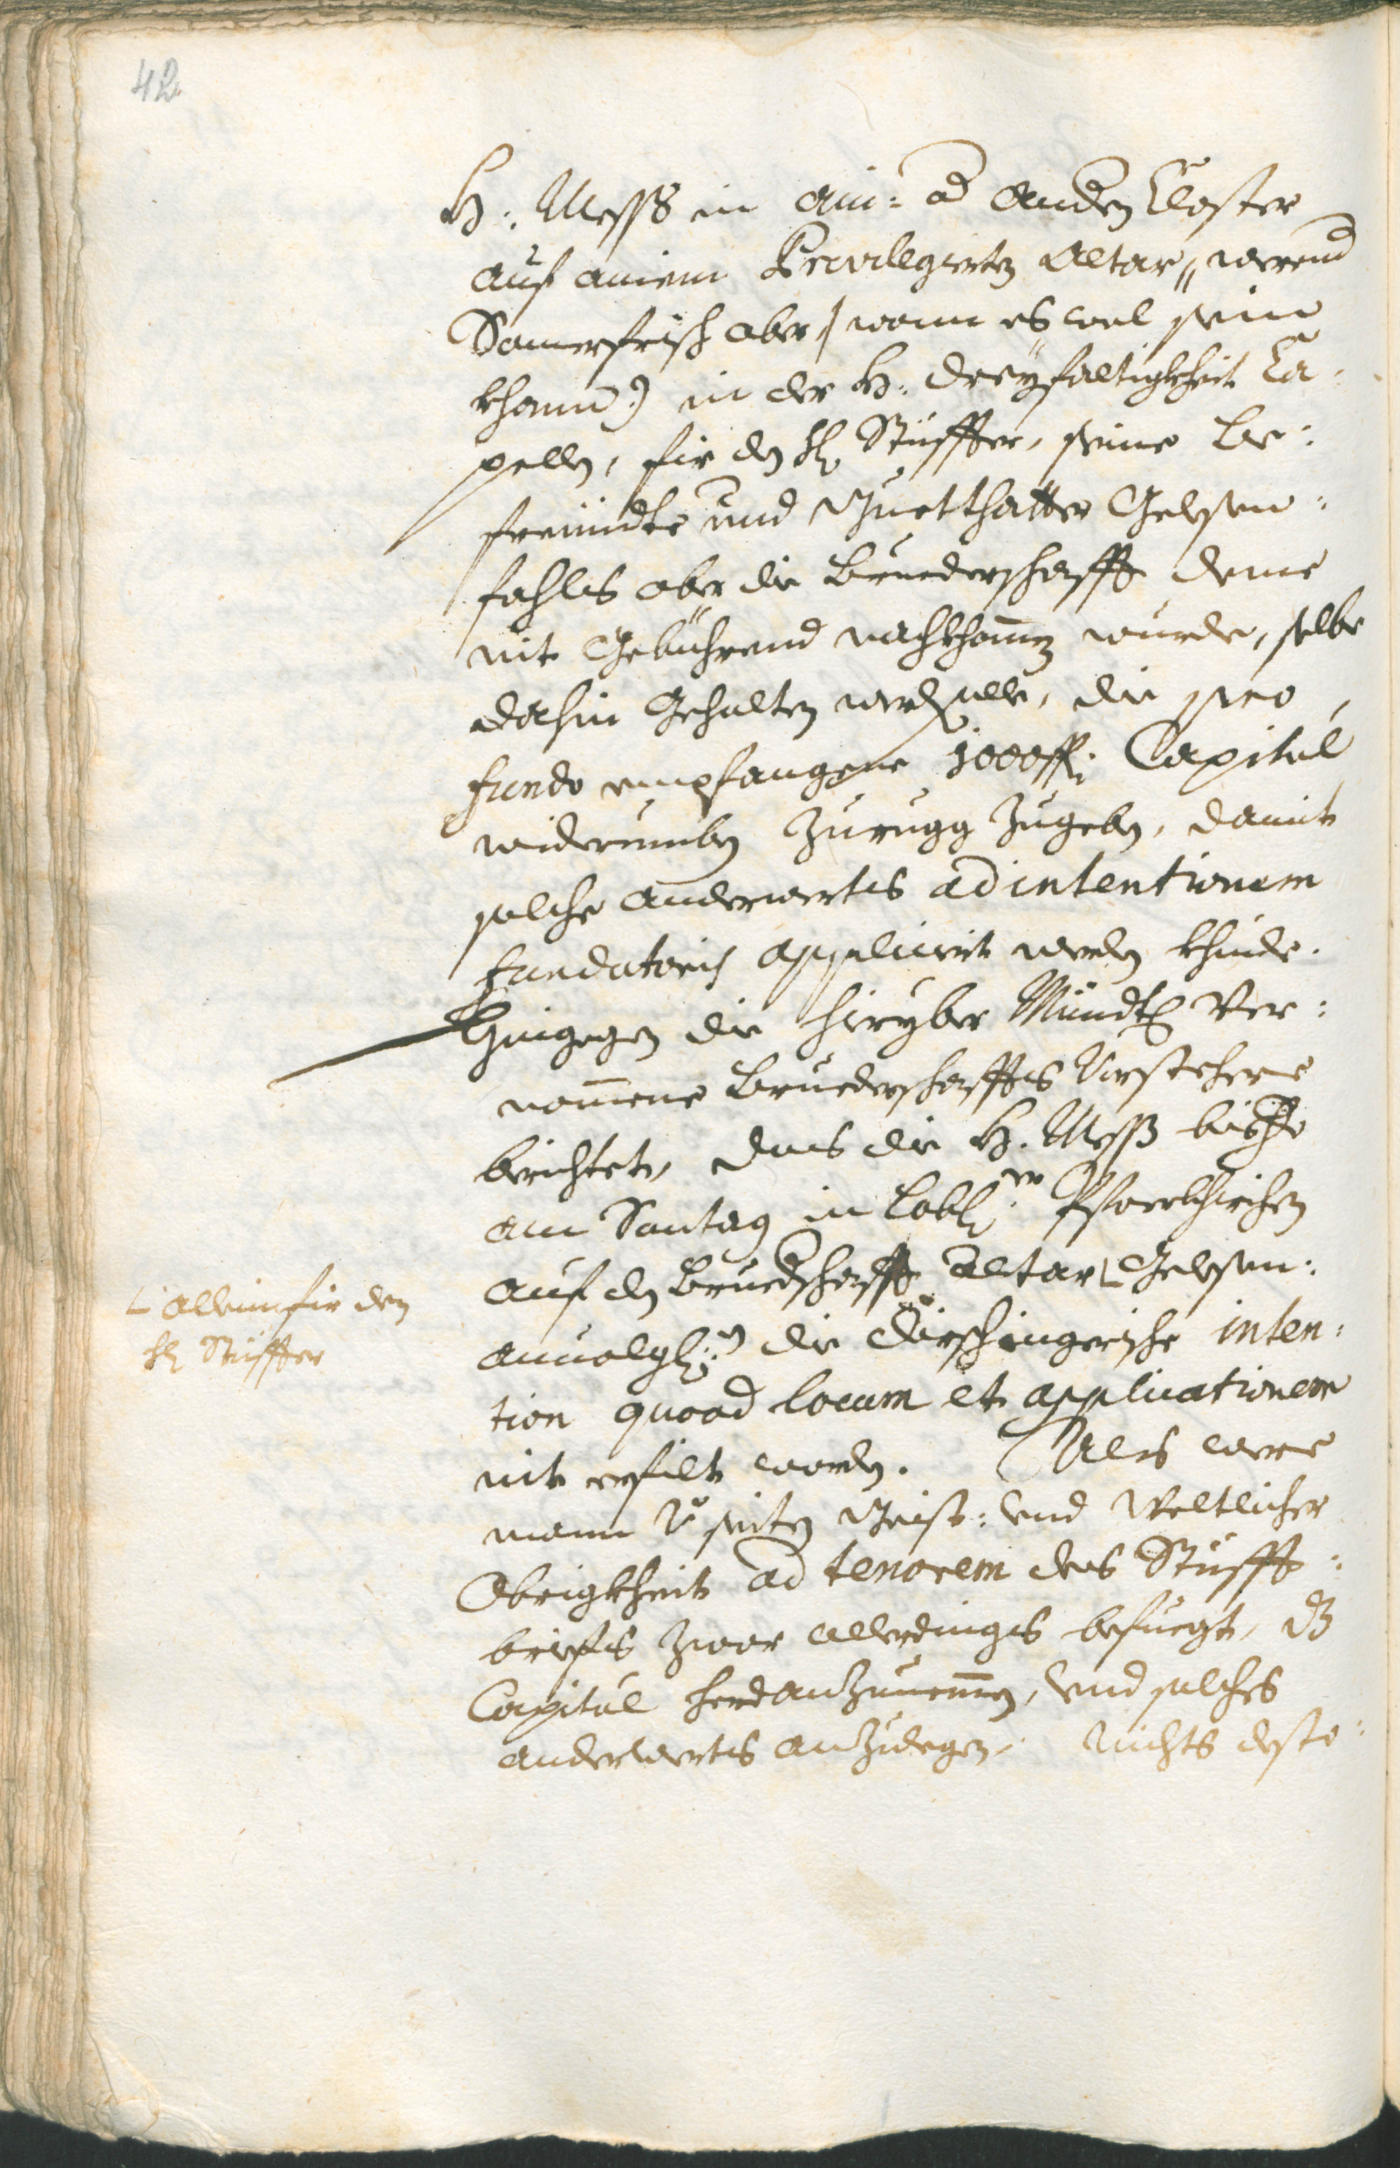 42
H: Mess in ain: od Andern Closter
auf ainem Privilegierten Altar, werend
Somerfrisch aber /: wann es wol sein
khann :) in der H: Dreyfaltigkheit Ca-
pellen, für den H Stüffter, seine Be-
freündte und Guetthatter Gelesen:
fahls aber die Bruederschafft deme
nit Gebührend nachkhomen wurde, selbe
dahin Gehalten werden solle, die pro
fundo empfangene 1000 fl: Capital
widerumben zurugg zugeben, damit
solche anderwerts ad intentionem
fundatoris appliciert werden khinde.
Hingegen die hieryber Mündtl Ver-
nommene Bruederschaffts Vorstehere
berichtet, das die H: Mess bishero
am Sontag in Lobl: Pfarrkhirchen
auf den Bruederschafft Altar Gelesen:
└ allein für den
H Stüffter
anuolgl: die Dirschingerische inten-
tion quoad locum et applicationem
nit erfült worden. Als were
mann v seiten Geist: und Weltlicher
Obrigkheit ad tenorem des Stüfft-
briefs zwar allerdings befuegt, dz
Capital herdanzunemmen, und solches
anderwerts anzulegen, Nichts desto-